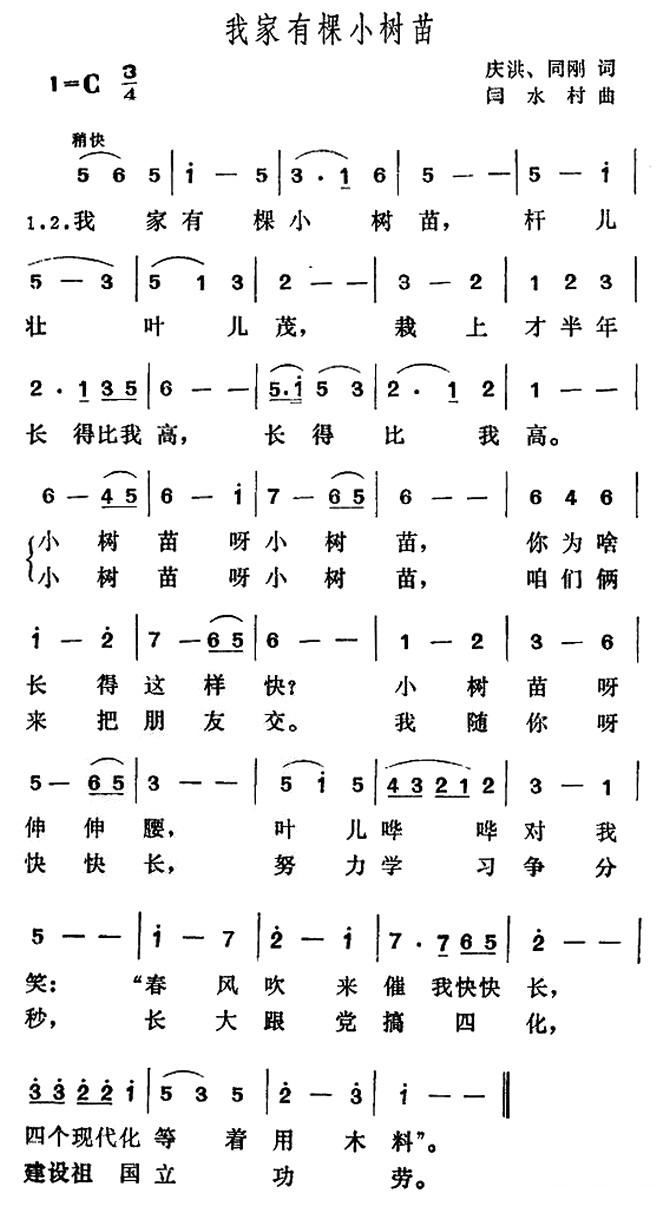 我家有棵小树苗
1=C 3/4
庆洪、同刚 词
闫水村 曲
稍快
5 6 5 | i - 5 | 3 · 1 6 | 5 - - | 5 - i |
1.2.我 家有 棵小 树苗, 杆儿
5 - 3 | 5 1 3 | 2 - - | 3 - 2 | 1 2 3 |
壮 叶儿茂, 栽上才半年
2 · 1 3 5 | 6 - - | 5 · i 5 3 | 2 · 1 2 | 1 - - |
长 得比我高, 长得 比 我高。
6 - 4 5 | 6 - i | 7 - 6 5 | 6 - - | 6 4 6 |
小树苗呀小树苗, 你为啥
小树苗呀小树苗, 咱们俩
i - 2 | 7 - 6 5 | 6 - - | 1 - 2 | 3 - 6 |
长得这样快? 小树苗呀
来把朋友交。 我随你呀
5 - 6 5 | 3 - - | 5 i 5 | 4 3 2 1 2 | 3 - 1 |
伸伸腰, 叶儿哗哗对我
快快长, 努力学习争分
5 - - | i - 7 | 2 - i | 7 · 7 6 5 | 2 - - |
笑: “春风吹来催我快快长,
秒, 长大跟党搞四化,
3 3 2 2 i | 5 3 5 | 2 - 3 | i - - ‖
四个现代化等着用木料”。
建设祖国立功劳。